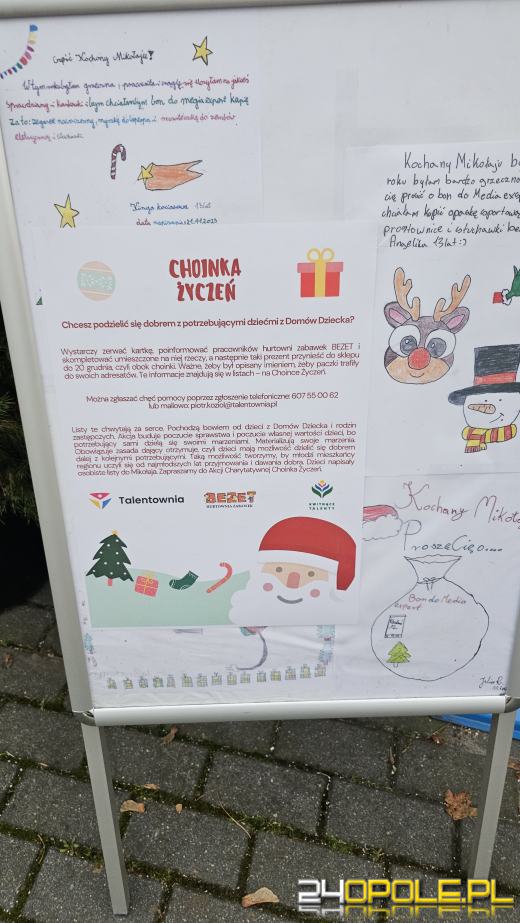 Cześć Kochany Mikołaju!
W tym roku byłam grzeczna i
Sprawdziany i kartkówki i bym chciałambym bon do mediaexpert kupię
za to: zegarek
Kinga 13 lat
data napisania 21.11.2023
Kochany Mikołaju
roku byłam bardzo grzeczna
cię prosić o bon do Media
chciałam kupić
prostownice i słuchawki
Angelika 13 lat :)
CHOINKA
ŻYCZEŃ
Chcesz podzielić się dobrem z potrzebującymi dziećmi z Domów Dziecka?
Wystarczy zerwać kartkę, poinformować pracowników hurtowni zabawek BEZET i
skompletować umieszczone na niej rzeczy, a następnie taki prezent przynieść do sklepu
do 20 grudnia, czyli obok choinki. Ważne, żeby był opisany imieniem, żeby paczki trafiły
do swoich adresatów. Te informacje znajdują się w listach – na Choince Życzeń.
Można zgłaszać chęć pomocy poprzez zgłoszenie telefoniczne: 607 55 00 62
lub mailowo: piotr.koziol@talentownia.pl
Listy te chwytają za serce. Pochodzą bowiem od dzieci z Domów Dziecka i rodzin
zastępczych. Akcja buduje poczucie sprawstwa i poczucie własnej wartości dzieci, bo
potrzebujący sami dzielą się swoimi marzeniami. Materializują swoje marzenia.
Obowiązuje zasada dający otrzymuje, czyli dzieci mają możliwość dzielić się dobrem
dalej z kolejnymi potrzebującymi. Taką możliwość tworzymy, by młodsi mieszkańcy
regionu uczyli się od najmłodszych lat przyjmowania i dawania dobra. Dzieci napisały
osobiste listy do Mikołaja. Zapraszamy do Akcji Charytatywnej Choinka Życzeń.
Talentownia
BEZET
HURTOWNIA ZABAWEK
KWITNĄCE
TALENTY
Kochany Mikoła
Proszę Cię o....
Bon do Media
expert
Julia R.
24OPOLE.PL